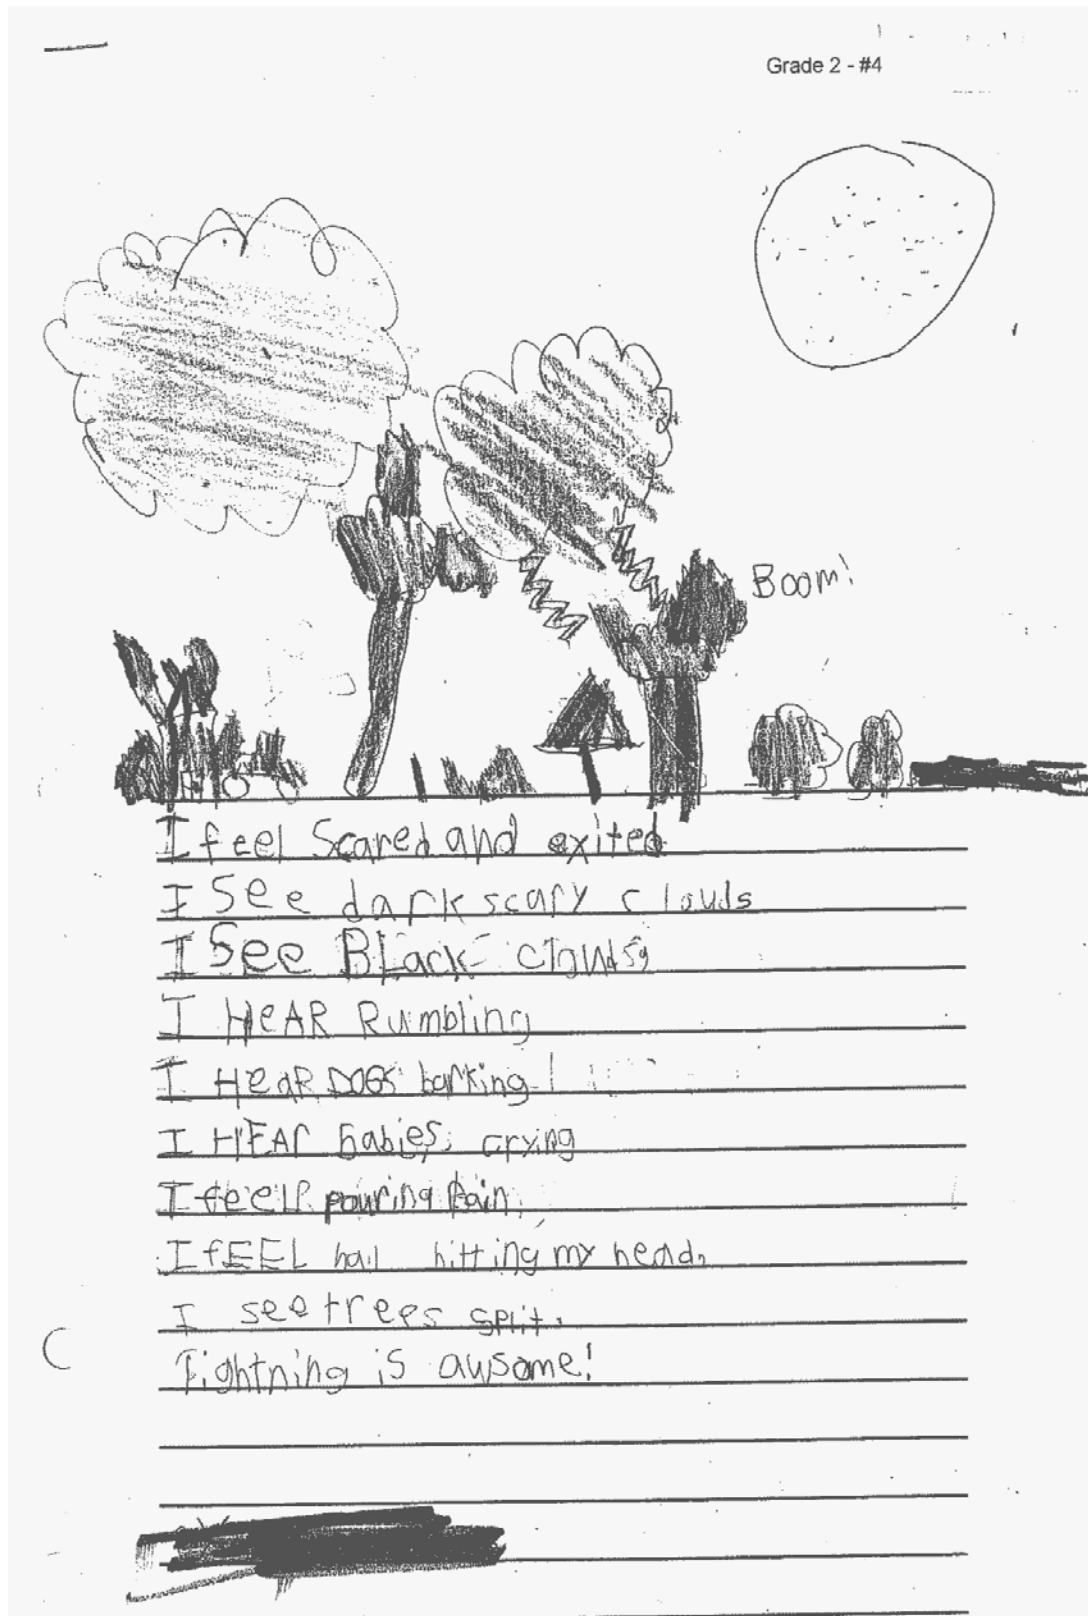 Grade 2 - #4
Boom!
I feel Scared and exited
I See dark scary clouds
I See BLack clouds
I HeAR Rumbling
I HeaR DOGS barking!
I HEAr babies crying
I feel pouring Rain.
I fEEL hail hitting my head.
I see trees split.
Lightning is ausome!